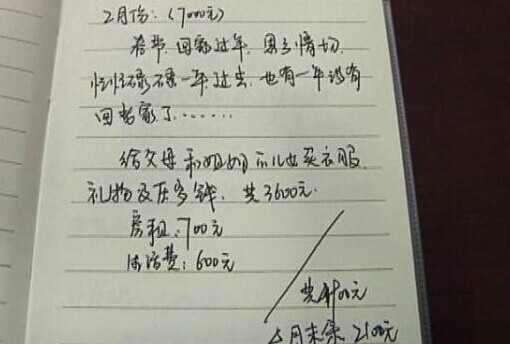 2月份：（7000元）
春节，回家过年，思乡情切，
忙忙碌碌一年过去，也有一年没有
回老家了……
给父母和姐姐 买衣服、
礼物及压岁钱，共3600元.
房租：700元
生活费：600元
共4900元
2月末余 2100元